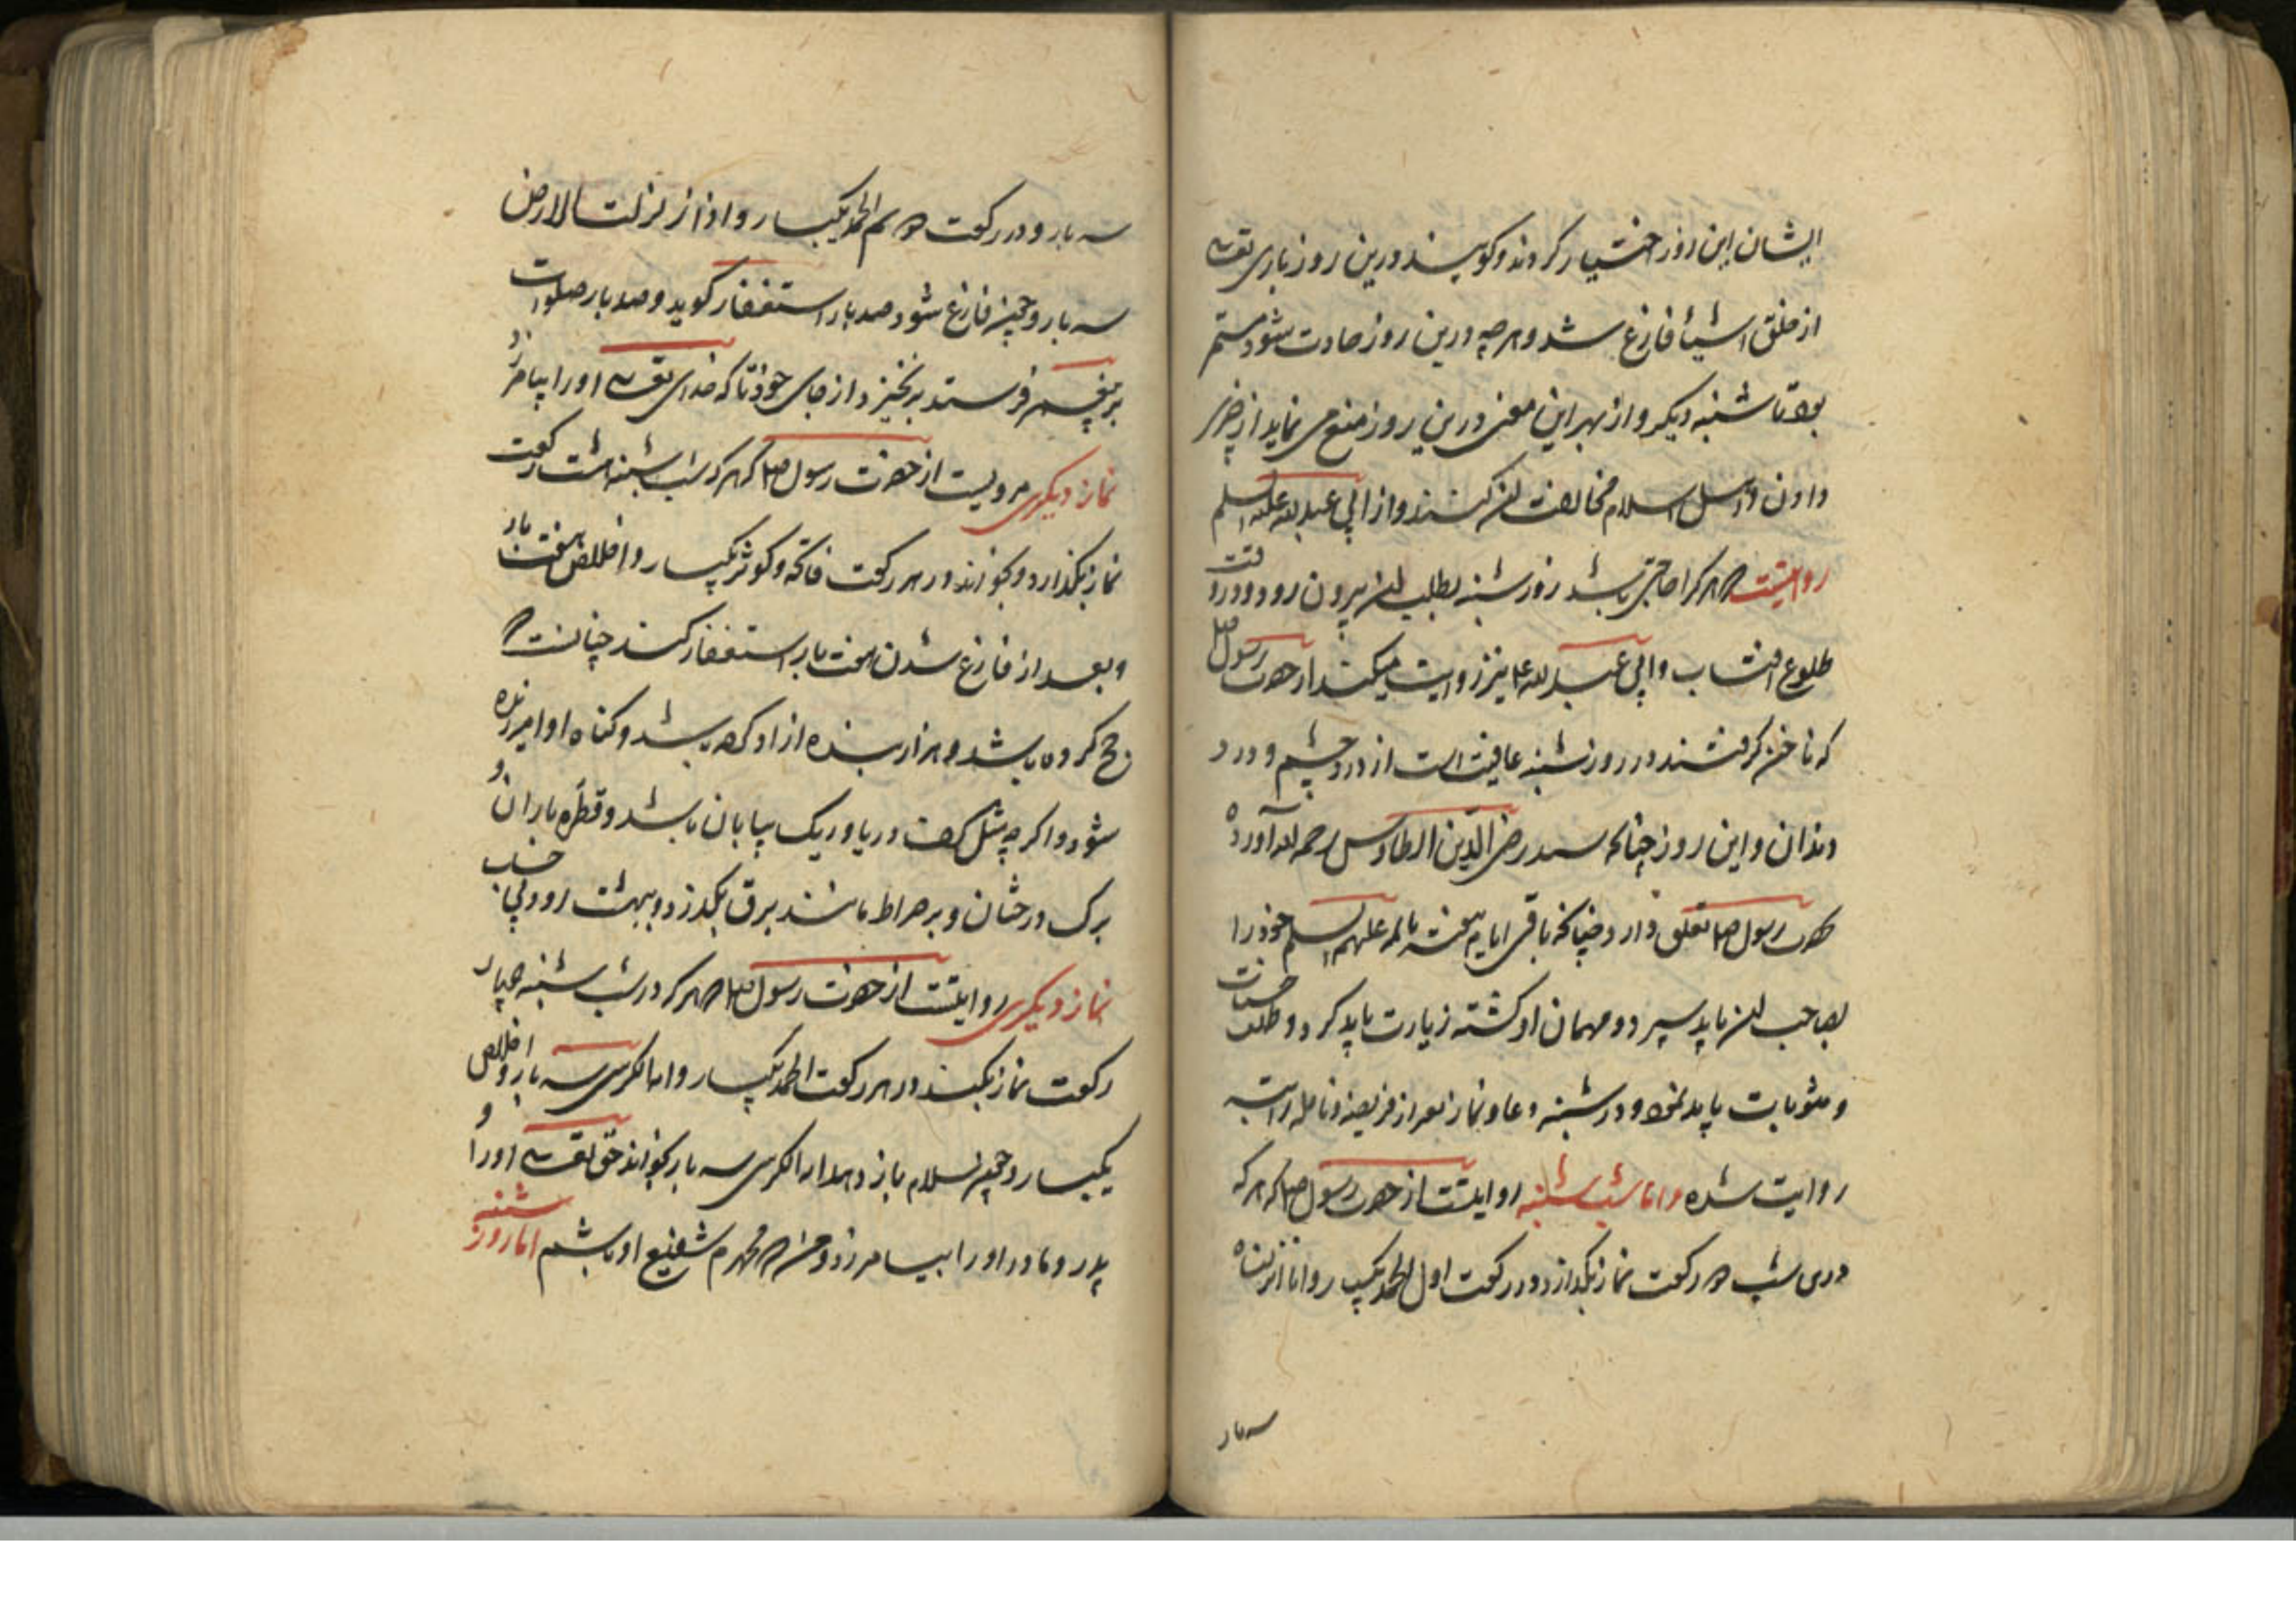 ایشان این روز اختیار کردند و کویند درین روز باری تعالی
از خلق اشیا فارغ شد و هرچه درین روز حادث شود مستمر
بود تا شنبه دیکر و از بهر این معنی درین روز منع می نماید از قرض
دادن و اهل اسلام مخالفت این کنند و از ابی عبدالله علیه السلم
روایتست که هرکرا حاجتی باشد روز شنبه بطلب این بیرون رود و در وقت
طلوع افتاب و ابی عبدالله ع نیز روایت میکند از حضرت رسول ص
که ناخن کرفتند در روز شنبه عافیت است از درد چشم و درد
دندان و این روز چنانکه سید رضی الدین الطاوس رحمه الله آورده
بحضرت رسول ص تعلق دارد چنانکه باقی ایام هفته بائمه علیهم السلم خود را
بصاحب این باید سپرد و مهمان او کشته زیارت باید کرد و طلب حسنات
و مثوبات باید نمود و در شنبه دعا و نماز بعد از فریضه و نافله راتبه
روایت شده و اما شب شنبه روایتست از حضرت رسول ص که هرکه
درین شب دو رکعت نماز بگذارد در رکعت اول الحمد یکبار و انا انزلناه
سه بار
سه بار و در رکعت دویم الحمد یکبار و اذا زلزلت الارض
سه بار و چون فارغ شود صد بار استغفار کوید و صد بار صلوات
بر پیغمبر فرستد برنخیزد از جای خود تا که خدای تعالی او را بیامرزد
نماز دیکری مرویست از حضرت رسول ص که هرکه در شب شنبه هشت رکعت
نماز بگذارد و بخواند در هر رکعت فاتحه و کوثر یکبار و اخلاص هفت بار
و بعد از فارغ شدن هفت بار استغفار کند چنانست که
حج کرده باشد و هزار بنده ازاد کرده باشد و کناه او امرزیده
شود و اکرچه مثل کف دریا و ریک بیابان باشد و قطره باران و
برک درختان و بر صراط مانند برق بگذرد و ببهشت رود بی حساب
نماز دیکری روایتست از حضرت رسول ص که هرکه در شب شنبه چهار
رکعت نماز بکند در هر رکعت الحمد یکبار و ایة الکرسی سه بار و اخلاص
یکبار و چون سلام باز دهد ایة الکرسی سه بار بخواند حق تعالی او را و
پدر و مادر او را بیامرزد و من که محمدم شفیع او باشم اما روز شنبه